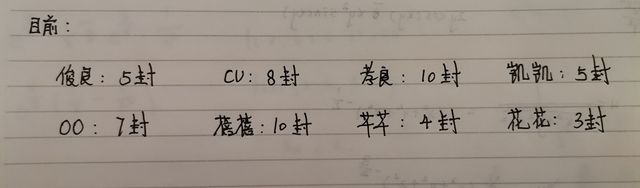 目前：
俊良：5封 CU：8封 孝良：10封 凯凯：5封
OO：7封 蓓蓓：10封 芊芊：4封 花花：3封